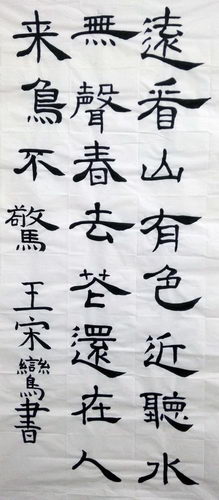 遠看山有色近聽水
無聲春去花還在人
来鳥不驚 王宋鸞書